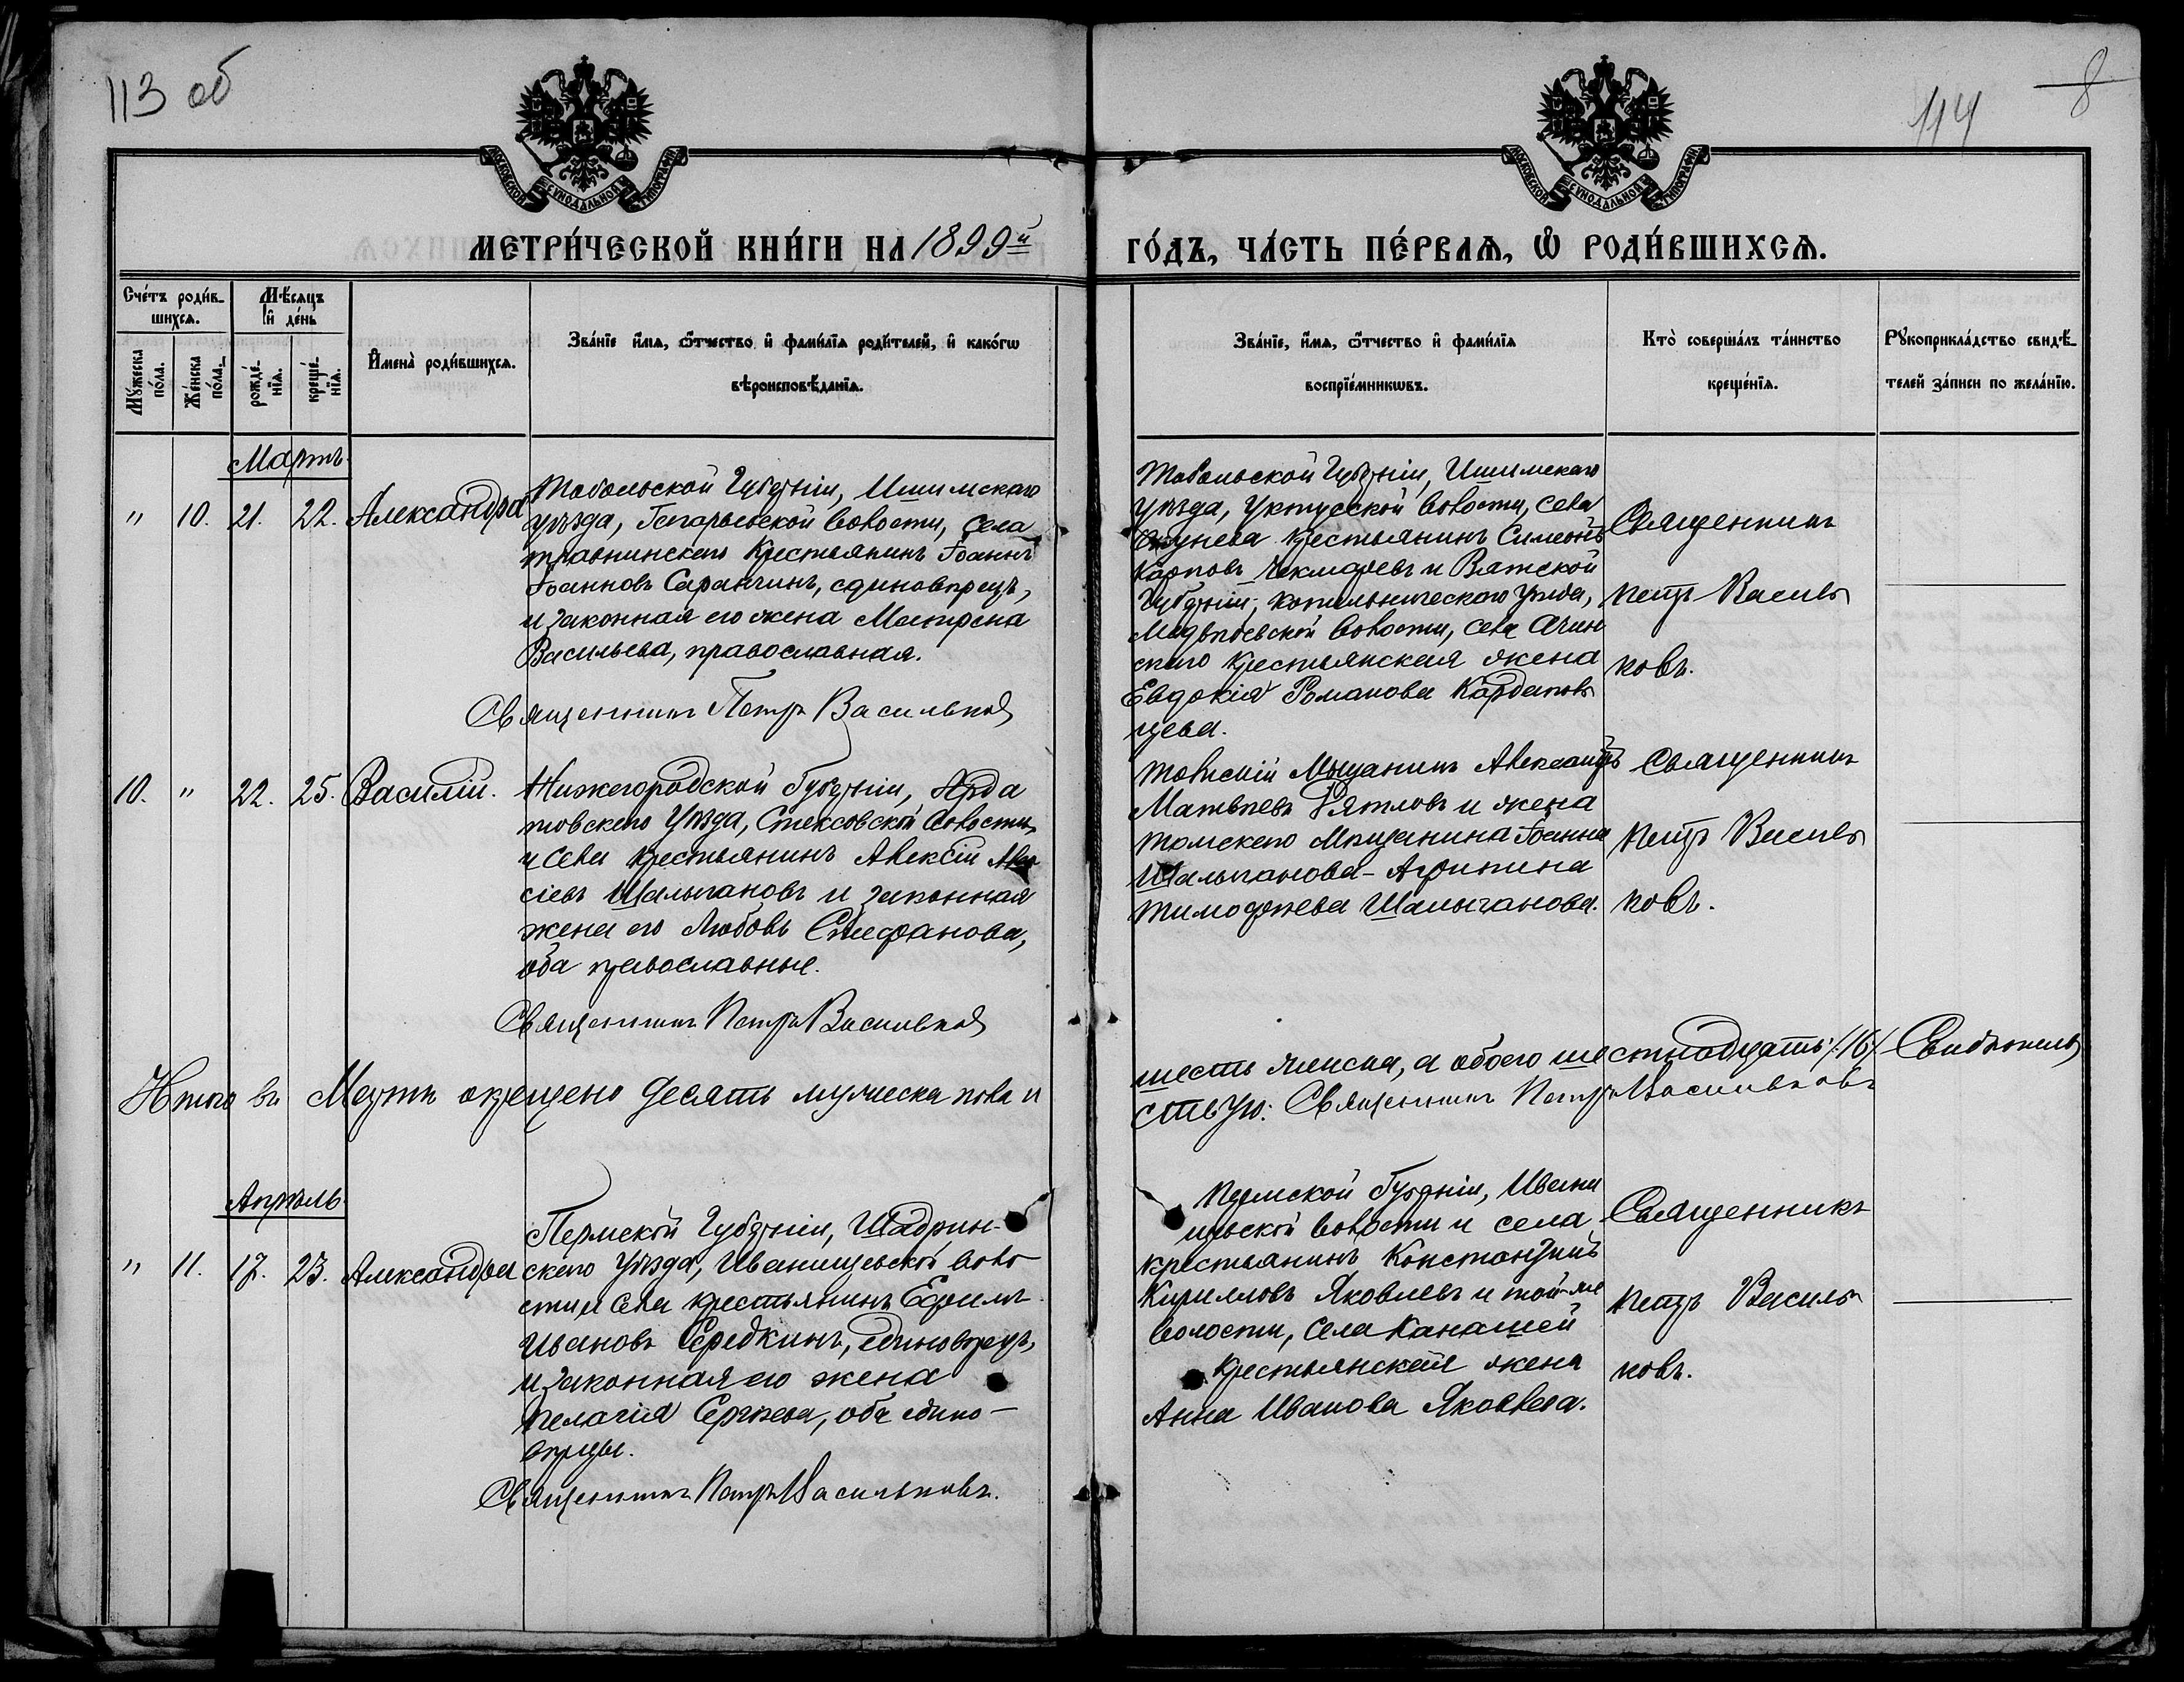 113 об
114
8
МОСКОВСКОЙ СѴНОДАЛЬНОЙ ТИПОГРАФІИ
МОСКОВСКОЙ СѴНОДАЛЬНОЙ ТИПОГРАФІИ
МЕТРИ́ЧЕСКОЙ КНИ́ГИ НА 1899й
ГО́ДЪ, ЧА́СТЬ ПЕ́РВАѦ, Ѽ РОДИ́ВШИХСѦ.
Сче́тъ роди́в-
шихсѧ.
Мѣ́сѧцъ
и҆ де́нь
Мꙋ́жеска
по́ла.
Же́нска
по́ла.
рожде́-
нїѧ.
креще́-
нїѧ.
И҆мена̀ роди́вшихсѧ.
Зва́нїе и҆́мѧ, ѻ҆́тчество и҆ фами́лїѧ роди́телей, и҆ како́гѡ
вѣроисповѣ́данїѧ.
Зва́нїе, и҆́мѧ, ѻ҆́тчество и҆ фами́лїѧ
воспрїе́мникѡвъ.
Кто̀ соверша́лъ та́инство
креще́нїѧ.
Рꙋкоприкла́дство свидѣ́-
телей за́писи по жела́нїю.
Мартъ
" 10. 21. 22. Александра
Тобольской Губерніи, Ишимскаго
уѣзда, Гагарьевской волости, села
Травнинскаго крестьянинъ Іоаннъ
Іоанновъ Саранчинъ, единовѣрецъ,
и законная его жена Матрена
Васильева, православная.
Священникъ Петръ Васильков
Тобольской Губерніи, Ишимскаго
уѣзда, Уктусской волости, села
крестьянинъ Симеонъ
Карповъ Чекмаревъ и Вятской
Губерніи, Котельническаго уѣзда,
Медвѣдевской волости, села
крестьянская жена
Евдокія Романова Кардапов
цева.
Священникъ
Петръ Василь
ковъ.
10. " 22. 25. Василій.
Нижегородской Губерніи, Арда
товскаго Уѣзда, Стексовской волости
и села крестьянинъ Алексій Алек
сіевъ Шалыгановъ и законная
жена его Любовь Стефанова,
оба православные.
Священникъ Петръ Васильков
Томскій Мѣщанинъ Александръ
Матвѣевъ Рятловъ и жена
томскаго мѣщанина Іоанна
Шалыганова - Агрипина
Тимофѣева Шалыганова.
Священникъ
Петръ Василь
ковъ.
Итого въ Мартѣ окрещено десять мужеска пола и
шесть женска, а обоего шестнадцать /16/. Свидѣтель
ствую: Священникъ Петръ Васильковъ
Апрѣль
" 11. 17. 23. Александра
Пермской Губерніи, Шадрин-
скаго Уѣзда, Иванищевской воло
сти и села крестьянинъ Ефимъ
Ивановъ Середкинъ, единовѣрецъ,
и законная его жена
Пелагія Сергѣева, оба едино-
вѣрцы.
Священникъ Петръ Васильковъ.
Пермской Губерніи, Ивани
щевской волости и села
крестьянинъ Константинъ
Кирилловъ Яковлевъ и той-же
волости, села Канашей
крестьянская жена
Анна Иванова Яковлева.
Священникъ
Петръ Василь
ковъ.